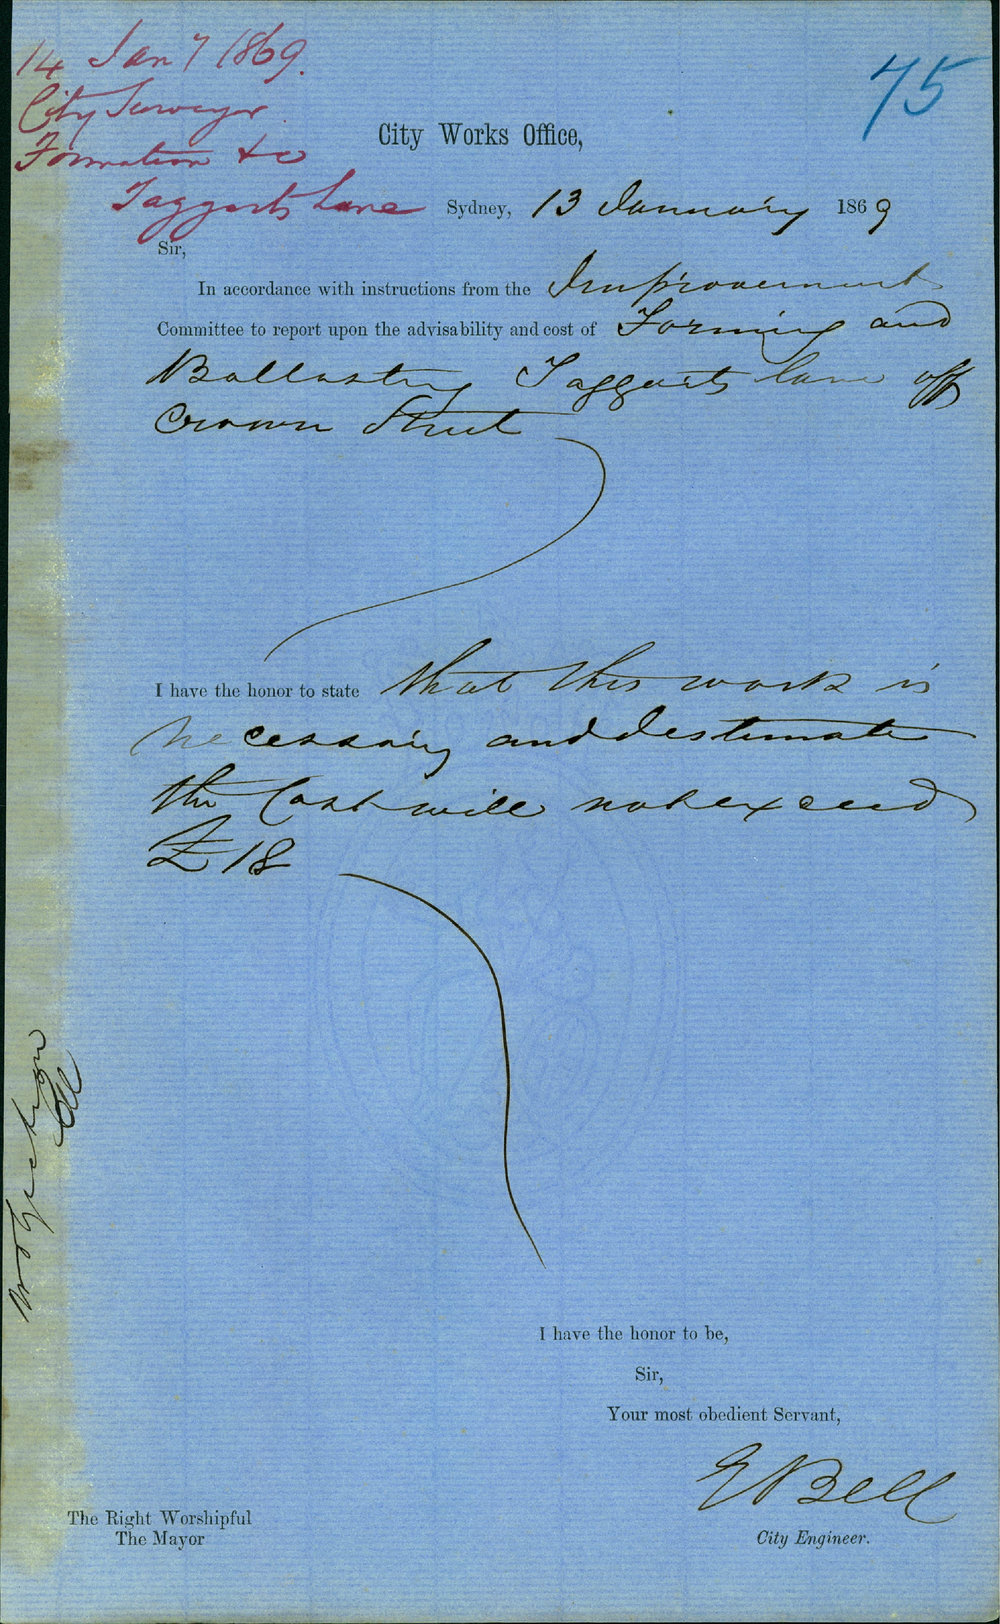 14 Jan 7 1869.
75
City Surveyor
Formation &c
Taggarts Lane
City Works Office,
Sydney, 13 January 1869
Sir,
In accordance with instructions from the Improvement
Committee to report upon the advisability and cost of Forming and
Ballasting Taggarts lane off
Crown Street
I have the honor to state that this work is
necessary and I estimate
the Cost will not exceed
£18
I have the honor to be,
Sir,
Your most obedient Servant,
E Bell
City Engineer.
The Right Worshipful
The Mayor